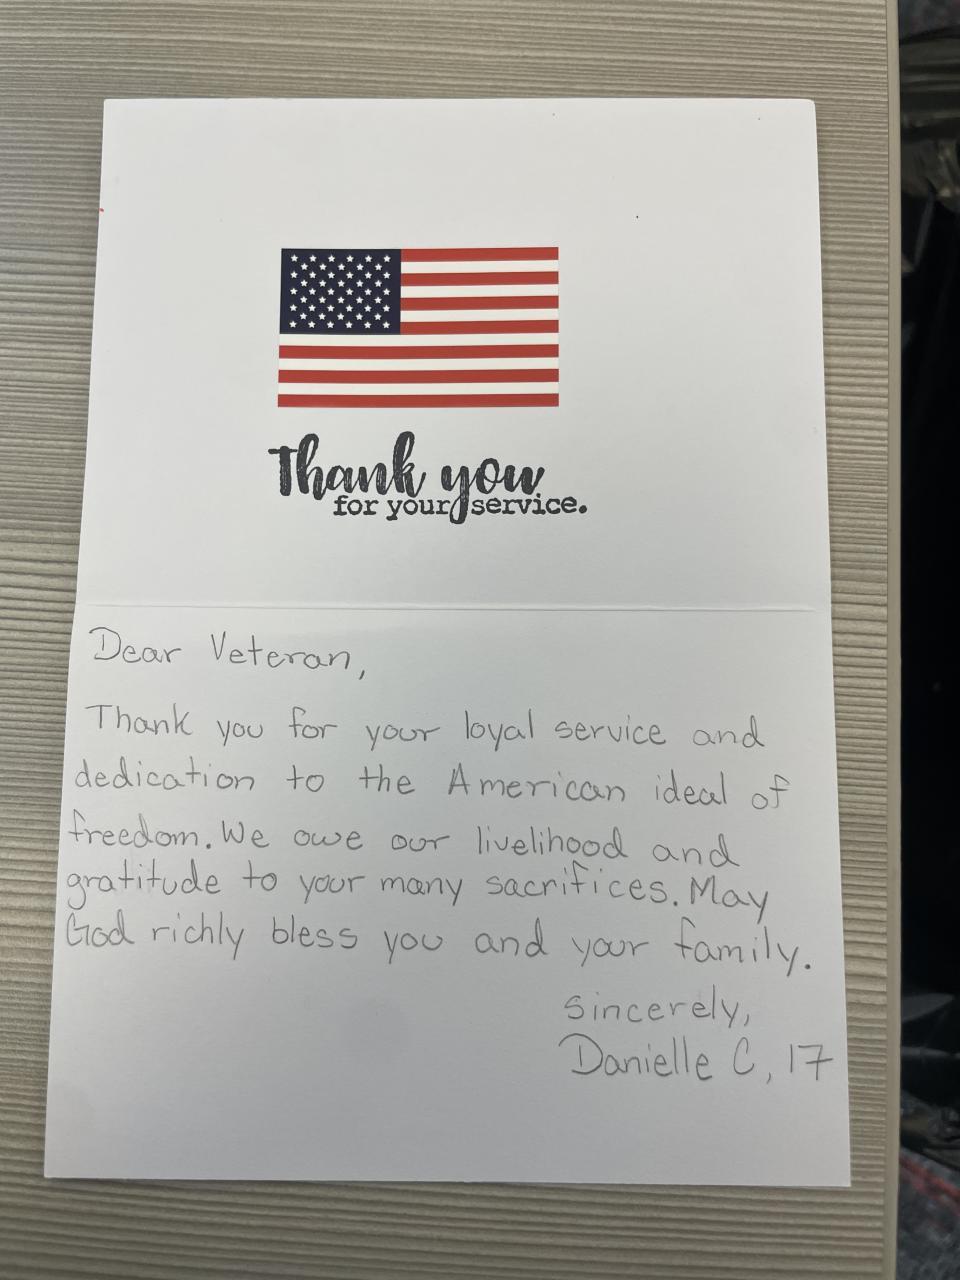 Thank you
for your service.
Dear Veteran,
Thank you for your loyal service and
dedication to the American ideal of
freedom. We owe our livelihood and
gratitude to your many sacrifices. May
God richly bless you and your family.
Sincerely,
Danielle C, 17